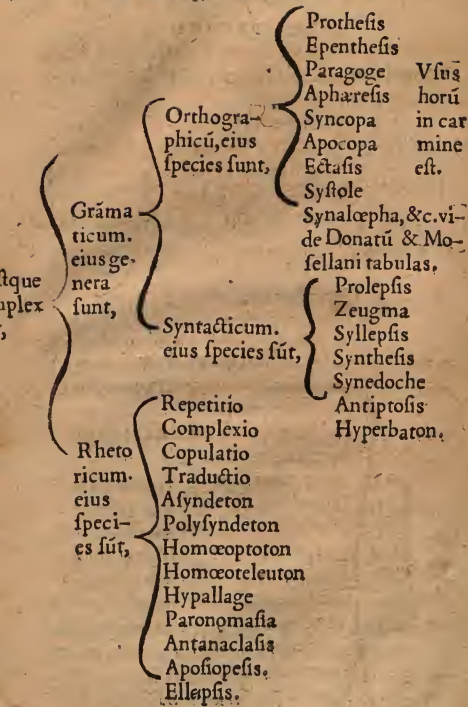 ſtque
uplex
,
Grãma
ticum.
eius ge-
nera
ſunt,
Orthogra-
phicũ, eius
ſpecies ſunt,
Protheſis
Epentheſis
Paragoge
Aphæreſis
Syncopa
Apocopa
Ectaſis
Syſtole
Synalœpha, &c. vi-
de Donatũ & Mo-
ſellani tabulas.
Vſus
horũ
in car
mine
eſt.
Syntacticum.
eius ſpecies ſũt,
Prolepſis
Zeugma
Syllepſis
Syntheſis
Synedoche
Antiptoſis
Hyperbaton.
Rheto
ricum.
eius
ſpeci-
es ſũt,
Repetitio
Complexio
Copulatio
Traductio
Aſyndeton
Polyſyndeton
Homœoptoton
Homœoteleuton
Hypallage
Paronomaſia
Antanaclaſis
Apoſiopeſis.
Ellæpſis.